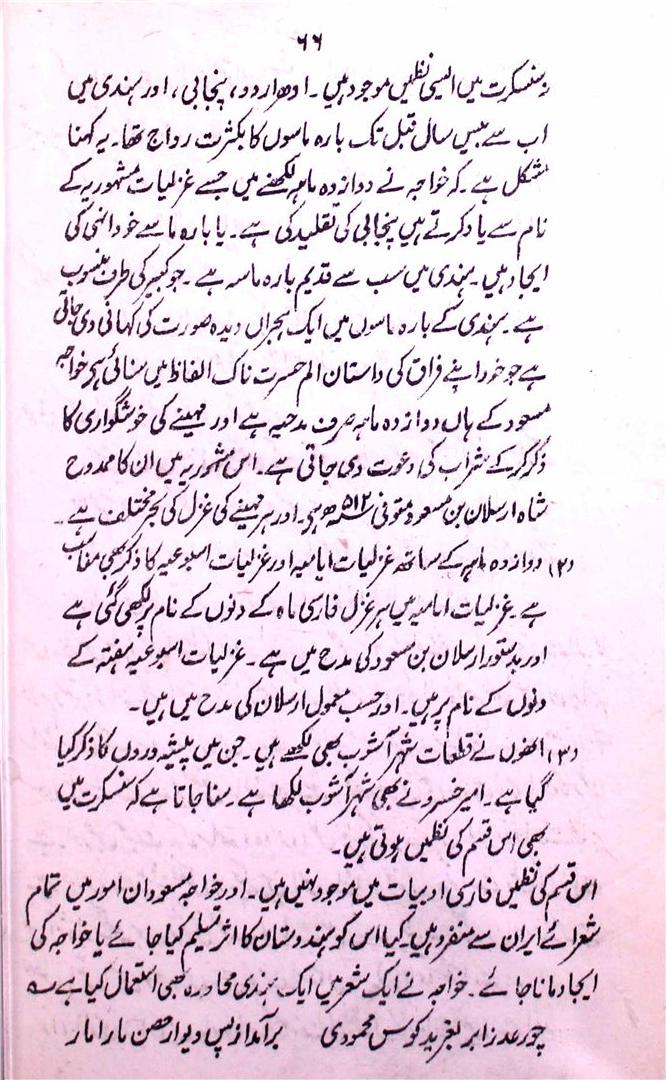 ۶۶
سنسکرت میں ایسی نظمیں موجود ہیں۔ اودھر اردو، پنجابی، اور ہندی میں
اب سے بیس سال قبل تک بارہ ماسوں کا بکثرت رواج تھا۔ یہ کہنا
مشکل ہے۔ کہ خواجہ نے دوازدہ ماہہ لکھنے میں جسے غزلیات مشہوریہ کے
نام سے یاد کرتے ہیں پنجابی کی تقلید کی ہے۔ یا بارہ ماسے خود انہی کی
ایجاد ہیں۔ ہندی میں سب سے قدیم بارہ ماسہ ہے۔ جو کبیر کی طرف منسوب
ہے۔ ہندی کے بارہ ماسوں میں ایک ہجراں دیدہ صورت کی کہانی دی جاتی
ہے جو خود اپنے فراق کی داستان الم حسرت ناک الفاظ میں سناتی ہے خواجہ
مسعود کے ہاں دوازدہ ماہہ صرف مدحیہ ہے اور مہینے کی خوشگواری کا
ذکر کر کے شراب کی دعوت دی جاتی ہے۔ اس مشہوریہ میں ان کا ممدوح
شاہ ارسلان بن مسعود متوفی ۵۱۲ھ ہے۔ اور ہر مہینے کی غزل کی بحر مختلف ہے۔
(۲) دوازدہ ماہہ کے ساتھ غزلیات ایامیہ اور غزلیات اسبوعیہ کا ذکر بھی مناسب
ہے۔ غزلیات ایامیہ میں ہر غزل فارسی ماہ کے دنوں کے نام پر لکھی گئی ہے
اور بدستور ارسلان بن مسعود کی مدح میں ہے۔ غزلیات اسبوعیہ ہفتہ کے
دنوں کے نام پر ہیں۔ اور حسب معمول ارسلان کی مدح میں ہیں۔
(۳) انھوں نے قطعات شہر آشوب بھی لکھے ہیں۔ جن میں پیشہ وروں کا ذکر کیا
گیا ہے۔ امیر خسرو نے بھی شہر آشوب لکھا ہے۔ سنا جاتا ہے کہ سنسکرت میں
بھی اس قسم کی نظمیں ہوتی ہیں۔
اس قسم کی نظمیں فارسی ادبیات میں موجود نہیں ہیں۔ اور خواجہ مسعود ان امور میں تمام
شعرائے ایران سے منفرد ہیں۔ کیا اس کو ہندوستان کا اثر تسلیم کیا جائے یا خواجہ کی
ایجاد مانا جائے۔ خواجہ نے ایک شعر میں ایک ہندی محاورہ بھی استعمال کیا ہے ؎
چو رعد ز ابر بغرید کوس محمودی برآمد از پس دیوار حصن مارا مار